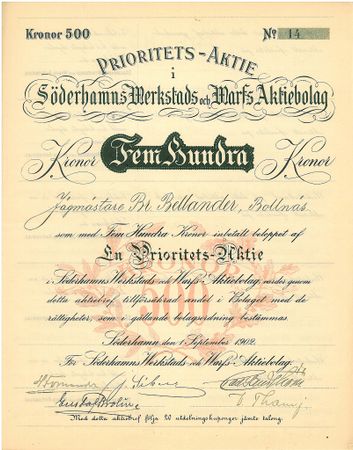 Kronor 500
No 14
PRIORITETS-AKTIE
i
Söderhamns Verkstads och Varfs Aktiebolag
Kronor Fem Hundra Kronor
Jägmästare Br. Bellander, Bollnäs.
som med Fem Hundra Kronor inbetalt beloppet af
En Prioritets-Aktie
i Söderhamns Verkstads och Varfs Aktiebolag, varder genom
detta aktiebref tillförsäkrad andel i Bolaget med de
rättigheter, som i gällande bolagsordning bestämmas.
Söderhamn den 1 September 1902.
För Söderhamns Verkstads och Varfs Aktiebolag.
Med detta aktiebref följa 20 utdelningskuponger jämte talong.